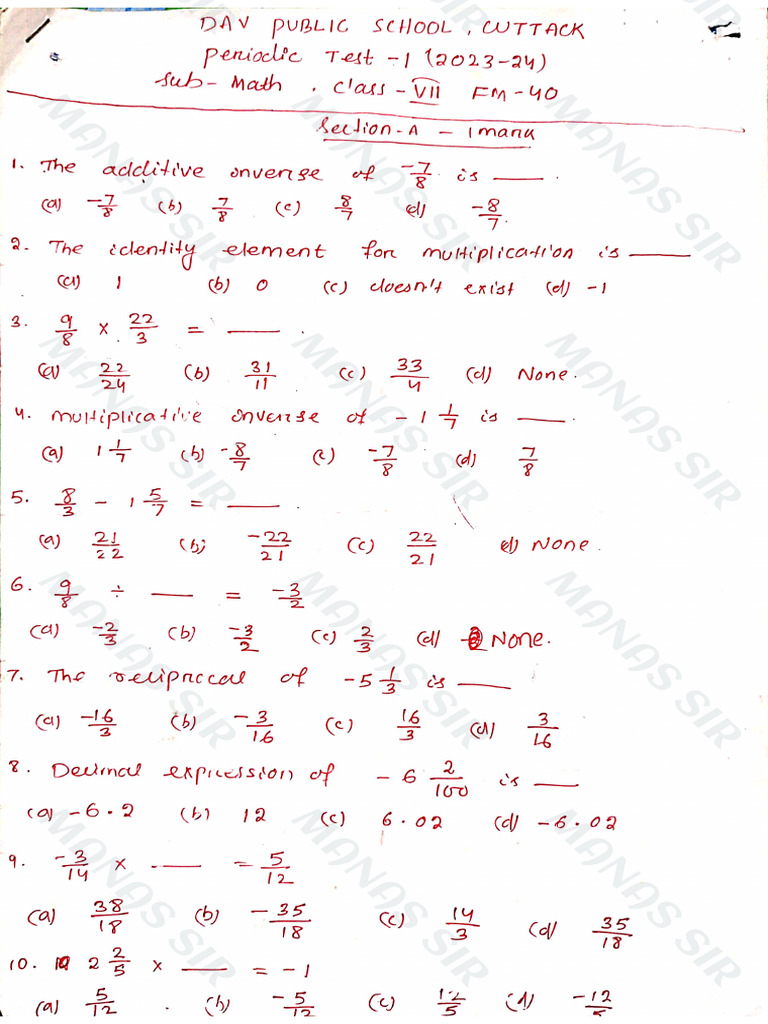 DAV PUBLIC SCHOOL, CUTTACK
Periodic Test -1 (2023-24)
Sub- Math . Class - VII FM-40
Section-A - 1 mark
1. The additive inverse of -7/8 is ___.
(a) -7/8 (b) 7/8 (c) 8/7 (d) -8/7.
2. The identity element for multiplication is ___
(a) 1 (b) 0 (c) doesn't exist (d) -1
3. 9/8 × 22/3 = ___.
(a) 22/24 (b) 31/11 (c) 33/4 (d) None.
4. Multiplicative inverse of -1 1/7 is ___.
(a) 1 1/7 (b) -8/7 (c) -7/8 (d) 7/8
5. 8/3 - 1 5/7 = ___.
(a) 21/22 (b) -22/21 (c) 22/21 (d) None.
6. 9/8 ÷ ___ = -3/2
(a) -2/3 (b) -3/2 (c) 2/3 (d) None.
7. The recipracal of -5 1/3 is ___
(a) -16/3 (b) -3/16 (c) 16/3 (d) 3/16
8. Decimal expression of -6 2/100 is ___
(a) -6.2 (b) 12 (c) 6.02 (d) -6.02
9. -3/14 × ___ = 5/12
(a) 38/18 (b) -35/18 (c) 14/3 (d) 35/18
10. 2 2/5 × ___ = -1
(a) 5/12 . (b) -5/12 (c) 12/5 (d) -12/5
MANAS SIR
MANAS SIR
MANAS SIR
MANAS SIR
MANAS SIR
MANAS SIR
MANAS SIR
MANAS SIR
MANAS SIR
MANAS SIR
MANAS SIR
MANAS SIR